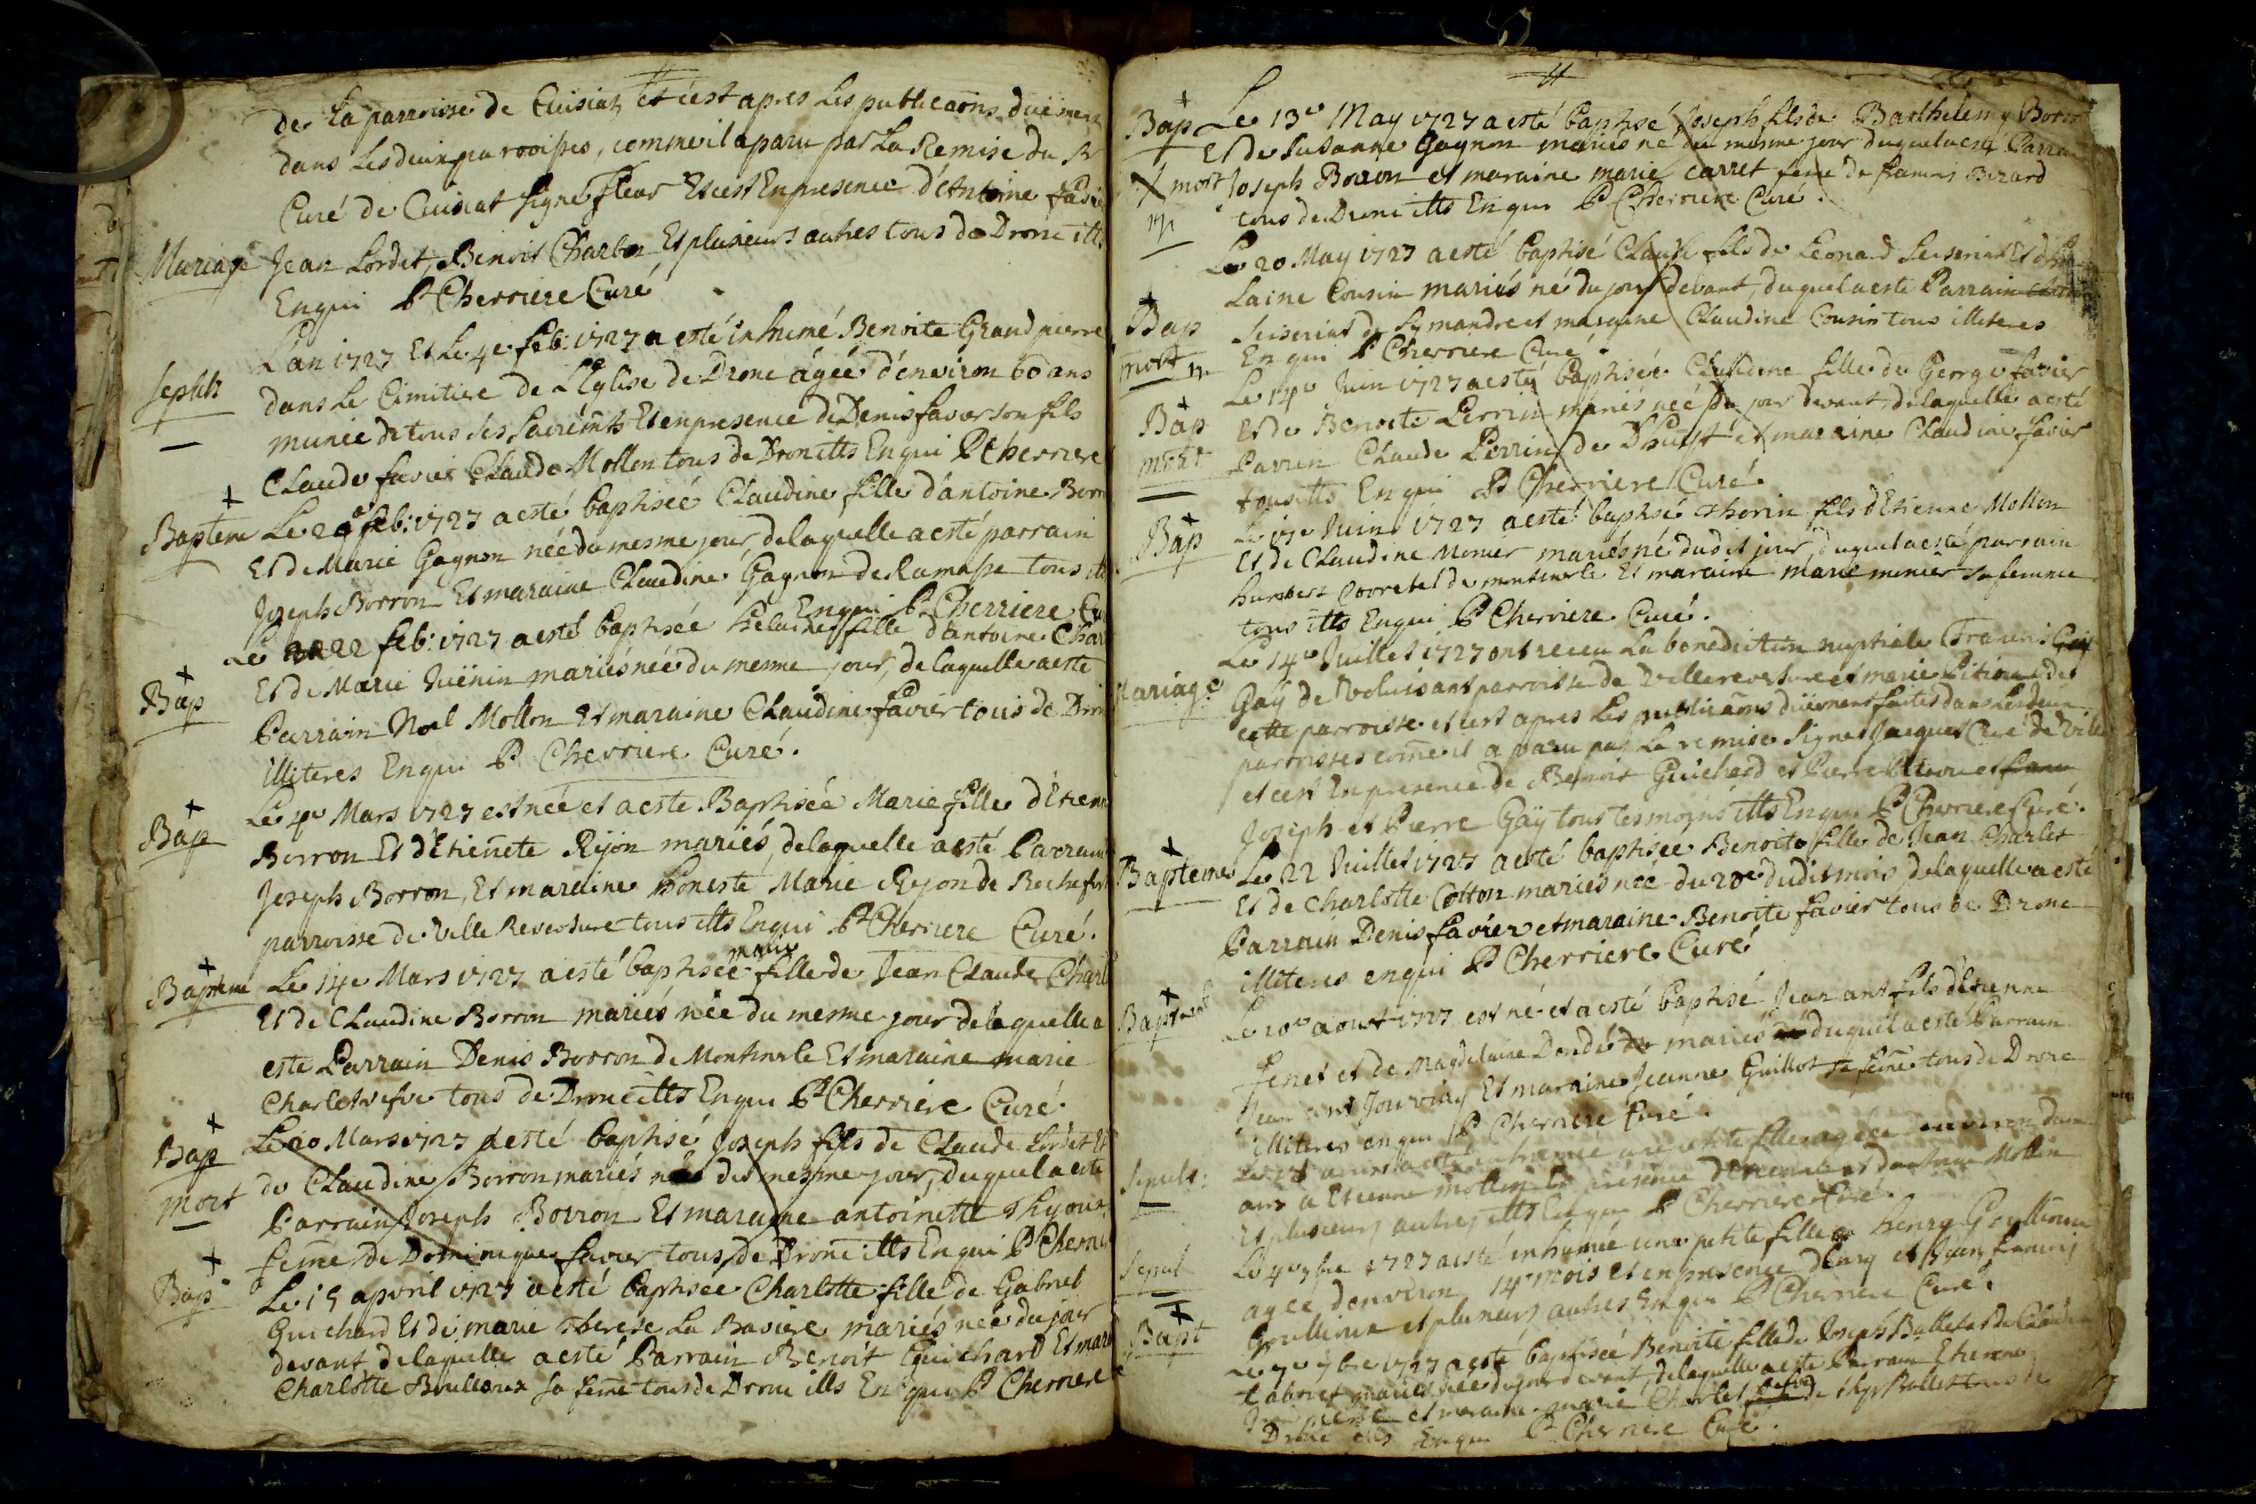 de la parroisse de Cuisiat et c'est apres les publicaõns duëment
dans les deux parroisses, comme il a paru par La Remise du Sr
Curé de Cuisiat signé fleur Et c'est En presence d'Antoine favie
Mariage Jean Lordet, Benoit Charbon Et plusieurs autres tous de Drom itts
Enqui P Cherriere Curé
L'an 1727 Et Le 4e feb: 1727 a esté inhumé Benoite Grandpierre
Sepult dans Le Cimitiere de L'Eglise de Drom âgée d'environ 60 ans
munie de tous ses Sacremts Et en presence de Denis favier son fils
Claude favier Claude Mollon tous de Drom itts Enqui P Cherriere
Baptême Le 20e feb: 1727 a esté baptiseé Claudine fille d'antoine Borron
Et de Marie Gagnon née du mesme jour, de laquelle a esté parrain
Joseph Borron Et maraine Claudine Gagnon de Ramasse tous itts
Enqui P Cherriere Cu
Le 22 feb: 1727 a esté baptisée helaine fille d'antoine Char
Bap Et de Marie Juënin mariés née du mesme jour, de laquelle a este
Parrain Noel Mollon Et maraine Claudine favier tous de Drom
illiteres Enqui P Cherriere Curé.
Le 4e Mars 1727 est née et a este Baptisée Marie fille d'Etienne
Bap Borron Et d'Etieñete Rijon mariés, de laquelle a esté Parrain
Joseph Borron, Et maraine honeste Marie Rijon de Rochefort
parroisse de Ville Reversure tous itts Enqui P Cherriere Curé.
marie
Baptême Le 14e Mars 1727 a esté baptisée fille de Jean Claude Charlet
Et de Claudine Borron mariés née du mesme jour de laquelle a
este Parrain Denis Borron de Montmerle Et maraine marie
Charlet vefve tous de Drom itts Enqui P Cherriere Curé.
Bap Le 20 Mars 1727 a esté baptisé Joseph fils de Claude Lordet Et
mort de Claudine Borron mariés né du mesme jour, duquel a esté
Parrain Joseph Borron Et maraine antoinette Thyou
feme de Dominique favier tous de Drom itts Enqui P Cherriere
Bap Le 15 apvril 1727 a esté baptisée Charlotte fille de Gabriel
Guichard Et de marie Therese La Baviere mariés née du jour
devant de laquelle a esté Parrain Benoit Guichard Et maraine
Charlotte Boulleoux sa feme tous de Drom itts Enqui P Cherriere
Bap Le 13e May 1727 a esté baptisé Joseph fils de Barthelemy Borron
Et de Susanne Gagnon mariés né du mesme jour duquel a esté Parrain
mort Joseph Borron et maraine marie carret feme de francois Bozard
tous de Drom itts Enqui P Cherriere Curé.
Le 20 May 1727 a esté baptisé Claude fils de Leonard Seiseriat Et d'he
Bap Laine Cousin mariés né du jour devant, duquel a esté Parrain
mort Seiseriat de Symandre et maraine Claudine Cousin tous illiteres
Enqui P Cherriere Curé
Le 14e Juin 1727 a esté baptisée Claudine fille de George favier
Bap Et de Benoite Perrin mariés née du jour devant, de laquelle a esté
mort Parrain Claude Perrin de Dhuist et maraine Claudine favier
tous itts Enqui P Cherriere Curé.
Bap Le 17e Juin 1727 a esté baptisé Thorin fils d'Etienne Mollon
Et de Claudine Monier mariés né dudit jour, duquel a esté parrain
humbert Corretel de montmerle Et maraine marie monier sa femme
tous itts Enqui P Cherriere Curé.
Le 14e Juillet 1727 ont receu La benediction nuptiale francois
Mariage Gay de Noluisant parroisse de Villereversure et marie Pitiou de
cette parroisse et c'est apres Les publicaõns duëment faites dans Les deux
parroisses comme il a paru par La remise signé Jacquet Curé de Ville
et c'est En presence de Benoit Guichard et Pierre Pitiou et
Joseph et Pierre Gay tous tesmoins itts Enqui P Cherriere Curé.
Bapteme Le 22 Juillet 1727 a esté baptisée Benoite fille de Jean Charlet
Et de Charlotte Cotton mariés née du 20e dudit mois, de laquelle a esté
Parrain Denis favier et maraine Benoite favier tous de Drom
illiteres enqui P Cherriere Curé
Baptême Le 10e aoust 1727 est né et a esté baptisé Jean ant fils d'Etienne
Jenet et de Magdelaine Dondé mariés duquel a esté Parrain
Jean ant Jouvray Et maraine Jeanne Guillot sa feme tous de Drom
illiteres enqui P Cherriere Curé.
Sepult: Le aoust a esté inhumée une petite fille agée environ deux
ans a Etienne mollon En présence d'Etienne et d'antoine Mollon
Et plusieurs autres itts Enqui P Cherriere Curé.
Sepul Le 4e 7bre 1727 a esté inhumée une petite fille a henry Goyllioux
agée d'environ 14 mois Et en presence d'henry et Jean francois
Goullioux et plusieurs autres Enqui P Cherriere Curé.
Bapt Le 7e 7bre 1727 a esté baptisée Benoite fille de Joseph Ballet et de Claudine
Laboret mariés née du jour devant, de laquelle a esté Parrain Etienne
et maraine marie Charlet vefve de Ballet tous de
Drom itts Enqui P Cherriere Curé.